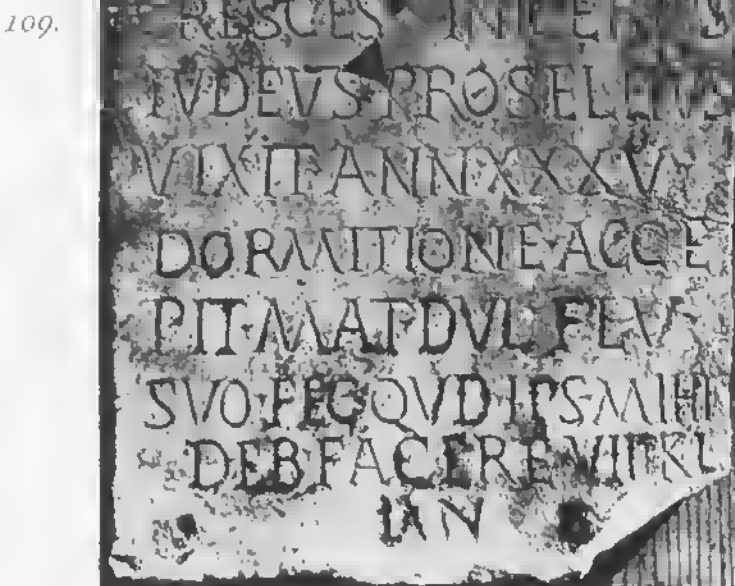 109.
RESCES
IVDEVS PROSEL
VIXIT ANN XXXV
DORMITIONE ACCE
PIT·MAT DVL
SVO FEC QVD IPS·MIHI
DEB FACERE VIII KL
IAN